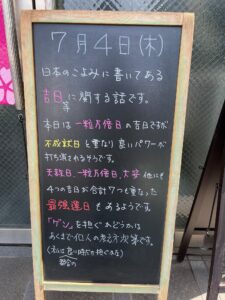 7月4日(木)
日本のこよみに書いてある
吉日等に関する話です。
本日は一粒万倍日の吉日ですが
不成就日と重なり良いパワーが
打ち消されるそうです。
天赦日、一粒万倍日、大安 他にも
4つの吉日が合計7つも重なった
最強運日もあるようです。
「ゲン」を担ぐかどうかは
あくまで個人の考え方次第です。
(私は良い時だけ担ぐかも)